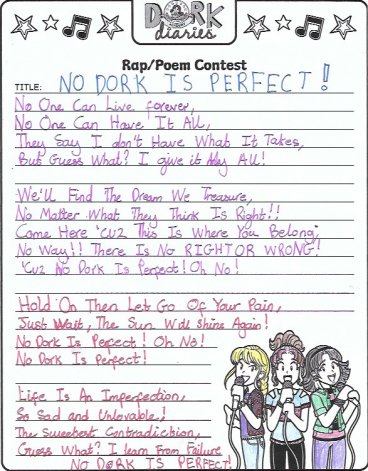 DORK
diaries
Rap/Poem Contest
TITLE: NO DORK IS PERFECT!
No One Can Live forever,
No One Can Have It All,
They Say I don't Have What It Takes,
But Guess What? I give it My All!
We'll Find The Dream We Treasure,
No Matter What They Think Is Right!!
Come Here 'Cuz This Is Where You Belong,
No Way!! There Is No RIGHT OR WRONG!
'Cuz No Dork Is Perfect! Oh No!
Hold On Then Let Go Of Your Pain,
Just Wait, The Sun Will Shine Again!
No Dork Is Perfect! Oh No!
No Dork Is Perfect!
Life Is An Imperfection,
So Sad and Unlovable!
The Sweetest Contradiction,
Guess What? I learn From Failure
NO DORK IS PERFECT!